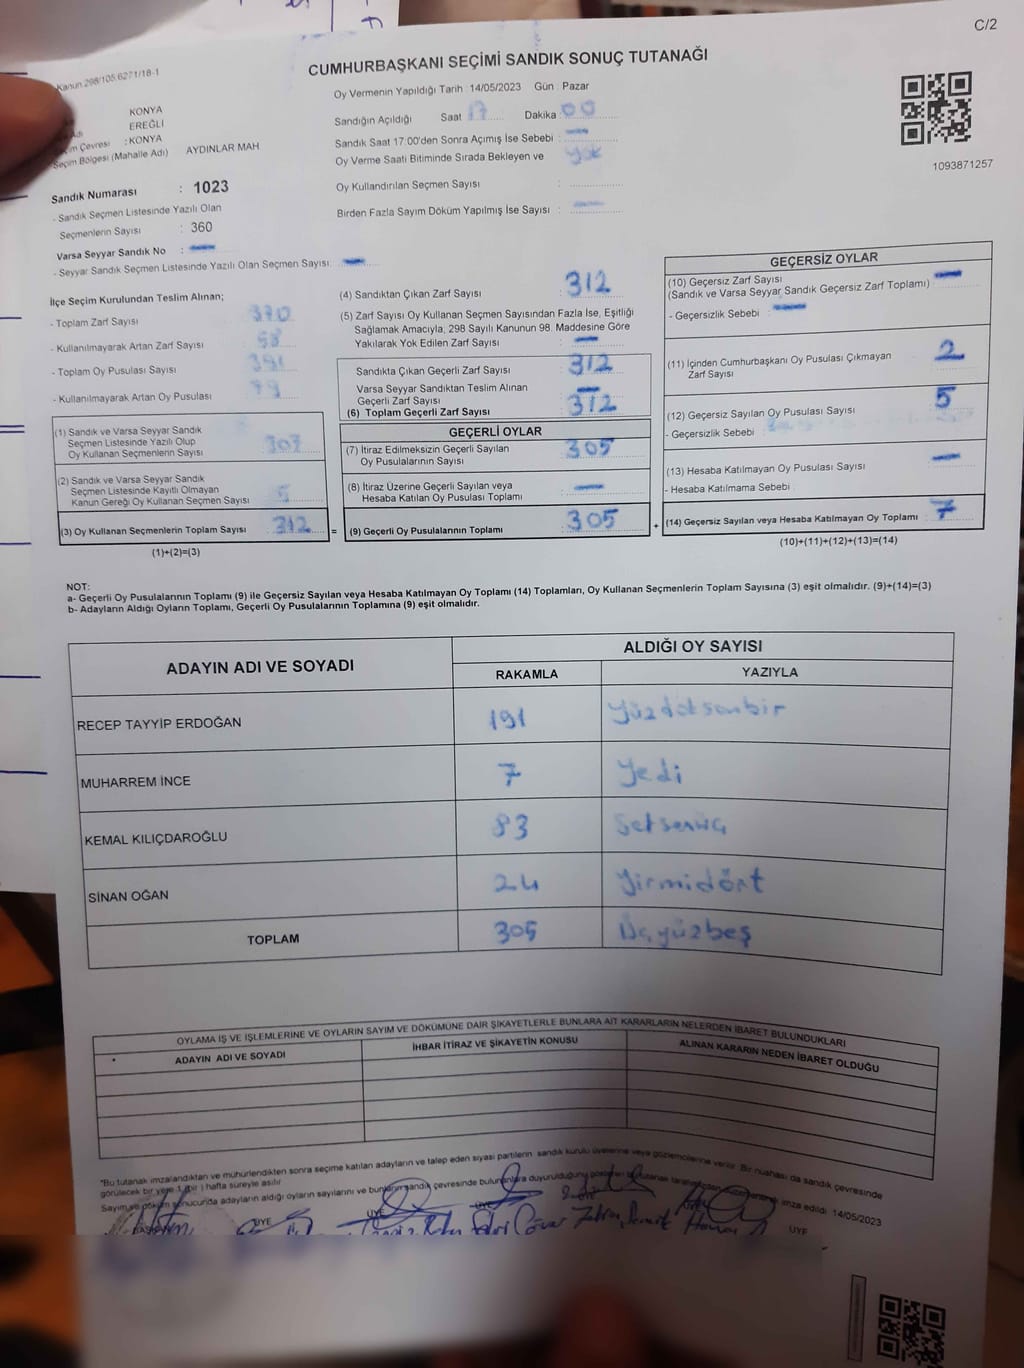 C/2
Kanun 298/105.6271/18-1
CUMHURBAŞKANI SEÇİMİ SANDIK SONUÇ TUTANAĞI
KONYA
Adı EREĞLİ
Çevresi : KONYA
Seçim Bölgesi (Mahalle Adı) AYDINLAR MAH
Sandık Numarası : 1023
- Sandık Seçmen Listesinde Yazılı Olan
Seçmenlerin Sayısı : 360
Varsa Seyyar Sandık No :
- Seyyar Sandık Seçmen Listesinde Yazılı Olan Seçmen Sayısı:
Oy Vermenin Yapıldığı Tarih 14/05/2023 Gün : Pazar
Sandığın Açıldığı Saat 17 Dakika : 00
Sandık Saat 17:00'den Sonra Açımış İse Sebebi :
Oy Verme Saati Bitiminde Sırada Bekleyen ve yok
Oy Kullandırılan Seçmen Sayısı :
Birden Fazla Sayım Döküm Yapılmış İse Sayısı :
1093871257
İlçe Seçim Kurulundan Teslim Alınan;
- Toplam Zarf Sayısı 370
- Kullanılmayarak Artan Zarf Sayısı 58
- Toplam Oy Pusulası Sayısı 391
- Kullanılmayarak Artan Oy Pusulası 79
(1) Sandık ve Varsa Seyyar Sandık
Seçmen Listesinde Yazılı Olup
Oy Kullanan Seçmenlerin Sayısı 307
(2) Sandık ve Varsa Seyyar Sandık
Seçmen Listesinde Kayıtlı Olmayan
Kanun Gereği Oy Kullanan Seçmen Sayısı 5
(3) Oy Kullanan Seçmenlerin Toplam Sayısı 312 =
(1)+(2)=(3)
(4) Sandıktan Çıkan Zarf Sayısı : 312
(5) Zarf Sayısı Oy Kullanan Seçmen Sayısından Fazla İse, Eşitliği
Sağlamak Amacıyla, 298 Sayılı Kanunun 98. Maddesine Göre
Yakılarak Yok Edilen Zarf Sayısı :
Sandıkta Çıkan Geçerli Zarf Sayısı : 312
Varsa Seyyar Sandıktan Teslim Alınan
Geçerli Zarf Sayısı :
(6) Toplam Geçerli Zarf Sayısı : 312
GEÇERLİ OYLAR
(7) İtiraz Edilmeksizin Geçerli Sayılan
Oy Pusulalarının Sayısı : 305
(8) İtiraz Üzerine Geçerli Sayılan veya
Hesaba Katılan Oy Pusulası Toplamı :
(9) Geçerli Oy Pusulalarının Toplamı : 305 +
GEÇERSİZ OYLAR
(10) Geçersiz Zarf Sayısı
(Sandık ve Varsa Seyyar Sandık Geçersiz Zarf Toplamı) :
- Geçersizlik Sebebi :
(11) İçinden Cumhurbaşkanı Oy Pusulası Çıkmayan
Zarf Sayısı 2
(12) Geçersiz Sayılan Oy Pusulası Sayısı : 5
- Geçersizlik Sebebi :
(13) Hesaba Katılmayan Oy Pusulası Sayısı :
- Hesaba Katılmama Sebebi :
(14) Geçersiz Sayılan veya Hesaba Katılmayan Oy Toplamı : 7
(10)+(11)+(12)+(13)=(14)
NOT:
a- Geçerli Oy Pusulalarının Toplamı (9) ile Geçersiz Sayılan veya Hesaba Katılmayan Oy Toplamı (14) Toplamları, Oy Kullanan Seçmenlerin Toplam Sayısına (3) eşit olmalıdır. (9)+(14)=(3)
b- Adayların Aldığı Oyların Toplamı, Geçerli Oy Pusulalarının Toplamına (9) eşit olmalıdır.
ADAYIN ADI VE SOYADI ALDIĞI OY SAYISI
RAKAMLA YAZIYLA
RECEP TAYYİP ERDOĞAN 191 Yüzdoksanbir
MUHARREM İNCE 7 Yedi
KEMAL KILIÇDAROĞLU 83 Seksenüç
SİNAN OĞAN 24 Yirmidört
TOPLAM 305 Üçyüzbeş
OYLAMA İŞ VE İŞLEMLERİNE VE OYLARIN SAYIM VE DÖKÜMÜNE DAİR ŞİKAYETLERLE BUNLARA AİT KARARLARIN NELERDEN İBARET BULUNDUKLARI
ADAYIN ADI VE SOYADI İHBAR İTİRAZ VE ŞİKAYETİN KONUSU ALINAN KARARIN NEDEN İBARET OLDUĞU
*Bu tutanak imzalandıktan ve mühürlendikten sonra seçime katılan adayların ve talep eden siyasi partilerin sandık kurulu üyelerine veya gözlemcilerine verilir. Bir nüshası da sandık çevresinde
görülecek bir yere 1 (bir) hafta süreyle asılır
Sayım ve döküm sonucunda adayların aldığı oyların sayılarını ve bunların sandık çevresinde bulunanlara duyurulduğunu imza edildi 14/05/2023
ÜYE ÜYE ÜYE